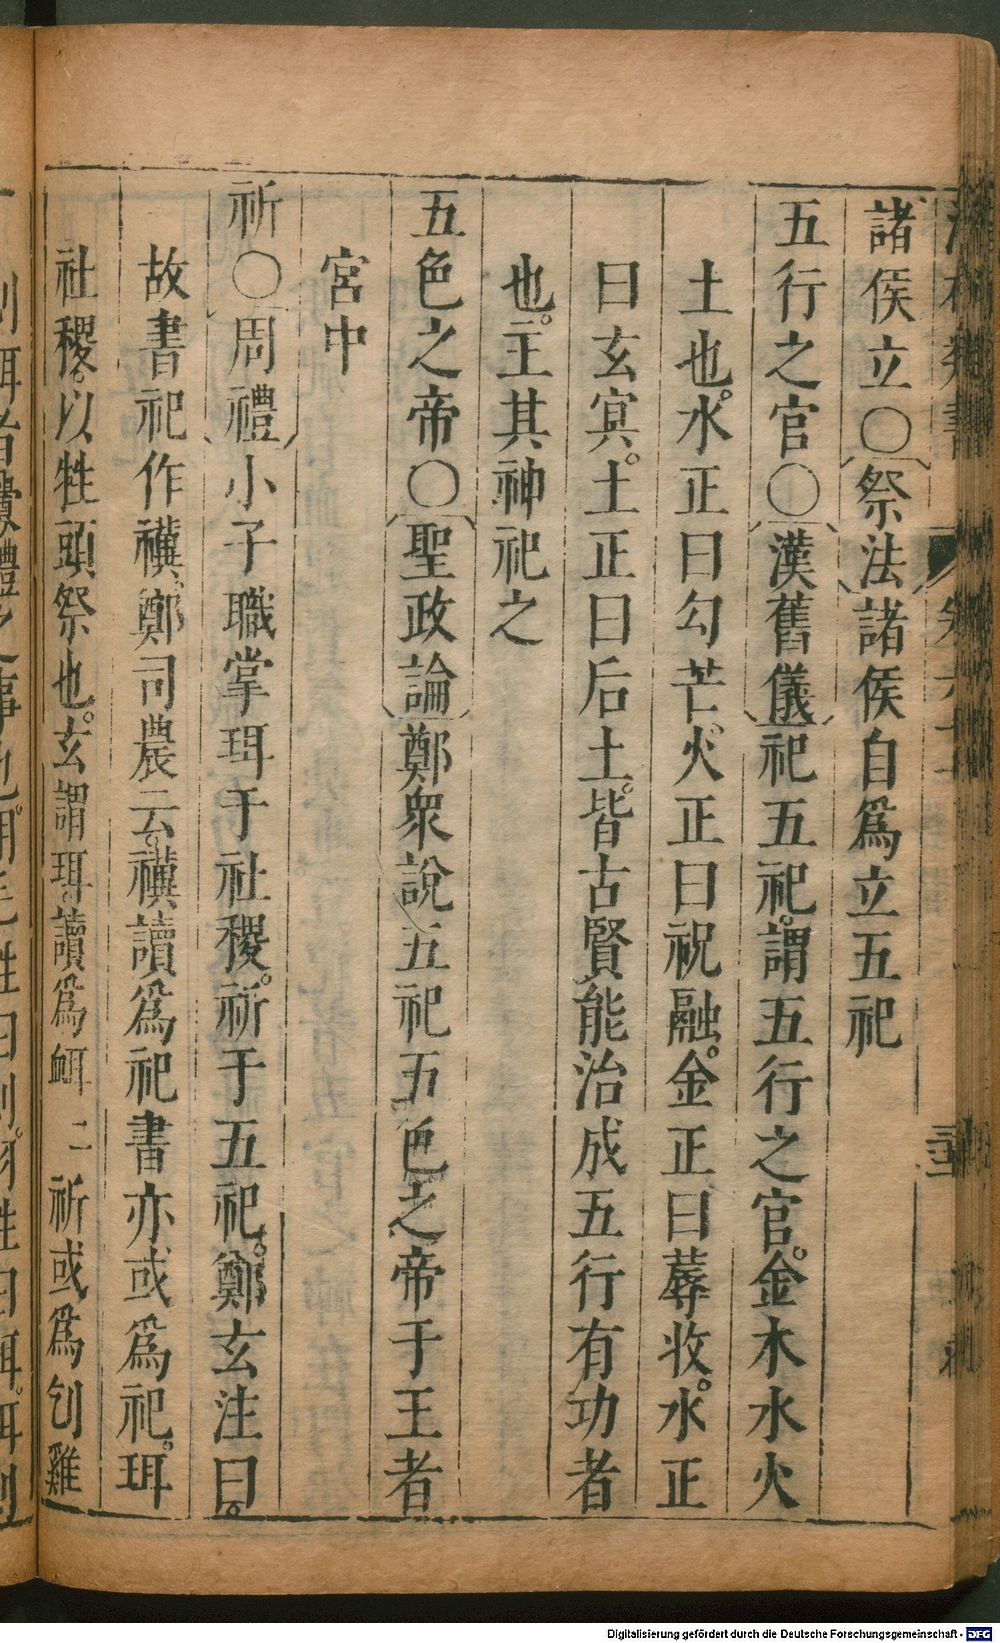 諸侯立〇祭法諸侯自爲立五祀
五行之官〇漢舊儀祀五祀。謂五行之官。金木水火
土也。水正曰勾芒。火正曰祝融。金正曰蓐收。水正
曰玄冥。土正曰后土。皆古賢能治成五行有功者
也。主其神祀之
五色之帝〇聖政論鄭衆說五祀五色之帝于王者
宮中
祈〇周禮小子職掌珥于社稷。祈于五祀。鄭玄注曰。
故書祀作禩。鄭司農云。禩讀爲祀書亦或爲祀。珥
社稷。以牲頭祭也。玄謂珥。讀爲衈 二 祈或爲刉雞
Digitalisierung gefördert durch die Deutsche Forschungsgemeinschaft - DFG